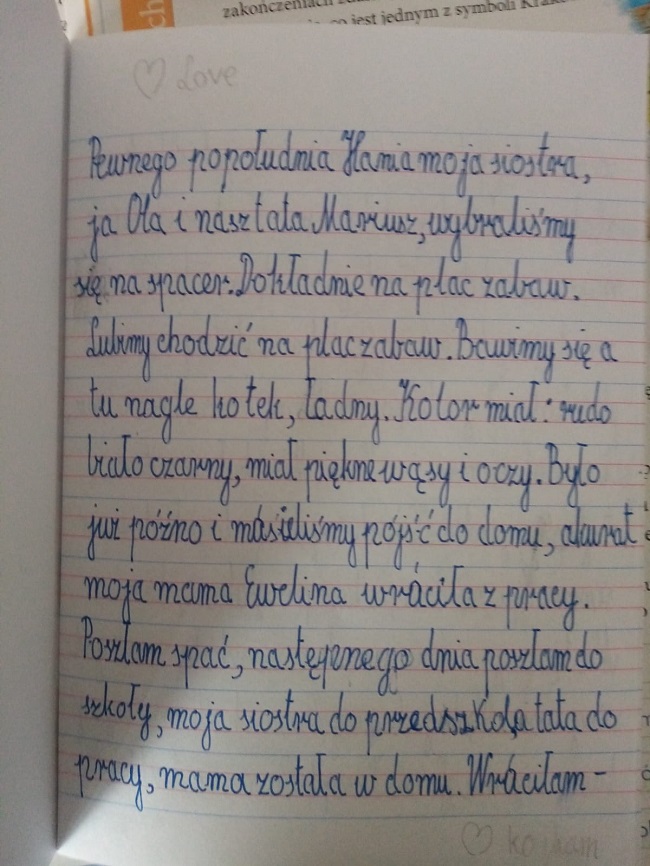 zakończeniach
jest jednym z symboli
ch
♡ Love
Pewnego popołudnia Hania moja siostra,
ja Ola i nasz tata Mariusz, wybraliśmy
się na spacer. Dokładnie na plac zabaw.
Lubimy chodzić na plac zabaw. Bawimy się a
tu nagle kotek, ładny. Kolor miał: rudo
biało czarny, miał piękne wąsy i oczy. Było
już późno i musieliśmy pójść do domu, akurat
moja mama Ewelina wráciła z pracy.
Poszłam spać, następnego dnia poszłam do
szkoły, moja siostra do przedszkola tata do
pracy, mama została w domu. Wráciłam -
♡ kocham